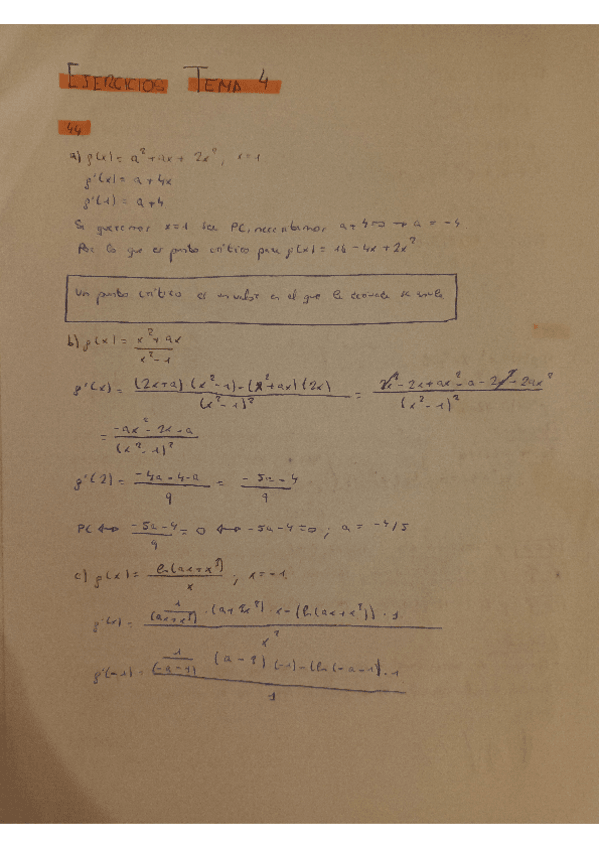 EJERCICIOS TEMA 4
44
a) f(x) = a² + ax + 2x², x=1
f'(x) = a + 4x
f'(1) = a + 4
Si queremos x=1 sea PC, necesitamos a+4=0 → a = -4
Por lo que es punto crítico para f(x) = 16 - 4x + 2x²
Un punto crítico es un valor en el que la derivada se anula
b) f(x) = (x² + ax)/(x² - 1)
f'(x) = ((2x+a)(x²-1) - (x²+ax)(2x))/(x²-1)² = (2x³ - 2x + ax² - a - 2x³ - 2ax²)/(x²-1)²
= (-ax² - 2x - a)/(x²-1)²
f'(2) = (-4a - 4 - a)/9 = (-5a - 4)/9
PC ↔ (-5a-4)/9 = 0 ↔ -5a-4=0; a = -4/5
c) f(x) = ln(ax+x²)/x; x=-1